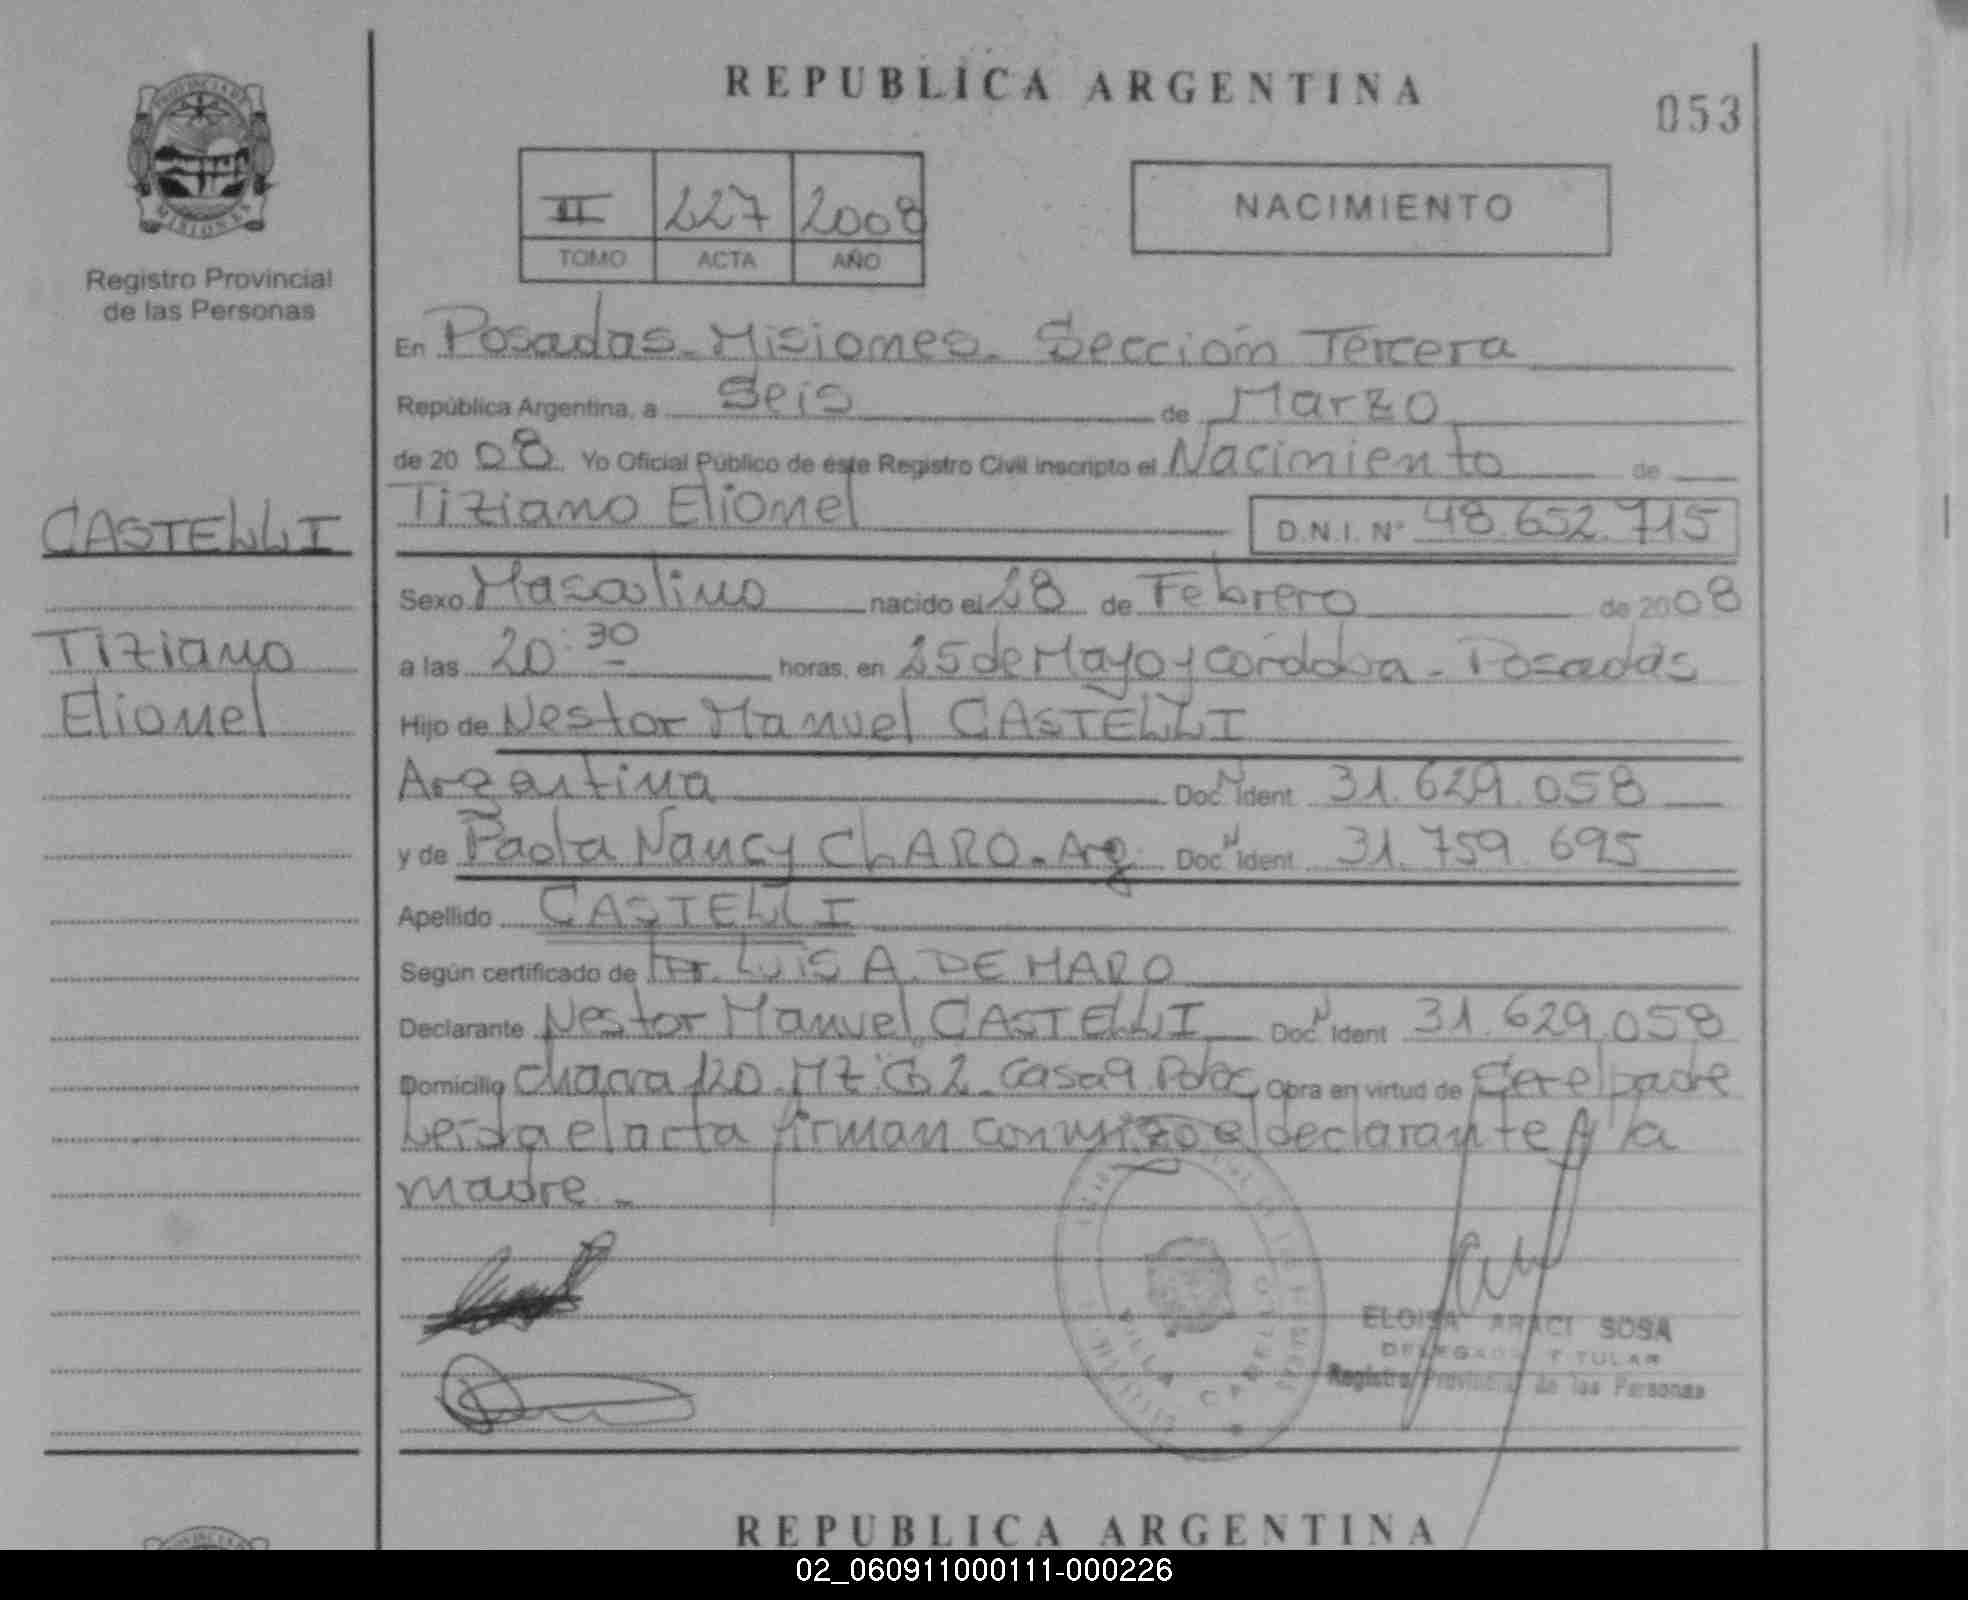 REPUBLICA ARGENTINA
053
PROVINCIA DE
MISIONES
Registro Provincial
de las Personas
II 227 2008
TOMO ACTA AÑO
NACIMIENTO
En Posadas - Misiones - Sección Tercera
República Argentina, a Seis de Marzo
de 2008. Yo Oficial Público de éste Registro Civil inscripto el Nacimiento de
Tiziano Elionel D.N.I. Nº 48.652.715
CASTELLI
Tiziano
Elionel
Sexo Masculino nacido el 28 de Febrero de 2008
a las 20:30 horas, en 25 de Mayo y Cordoba - Posadas
Hijo de Nestor Manuel CASTELLI
Argentina Doc N Ident 31.629.058
y de Paola Nancy ChARO - Arg. Doc N Ident 31.759.695
Apellido CASTELLI
Según certificado de Dr. LUIS A. DE MARO
Declarante Nestor Manuel CASTELLI Doc N Ident 31.629.058
Domicilio chacra 120 - MZ C 2 - Casa 9 Pdas Obra en virtud de Ser el padre
Leida el acta firman conmigo el declarante y la
madre -
ELOISA ARACI SOSA
DELEGADA TITULAR
Registro Provincial de las Personas
REPUBLICA ARGENTINA
02_060911000111-000226